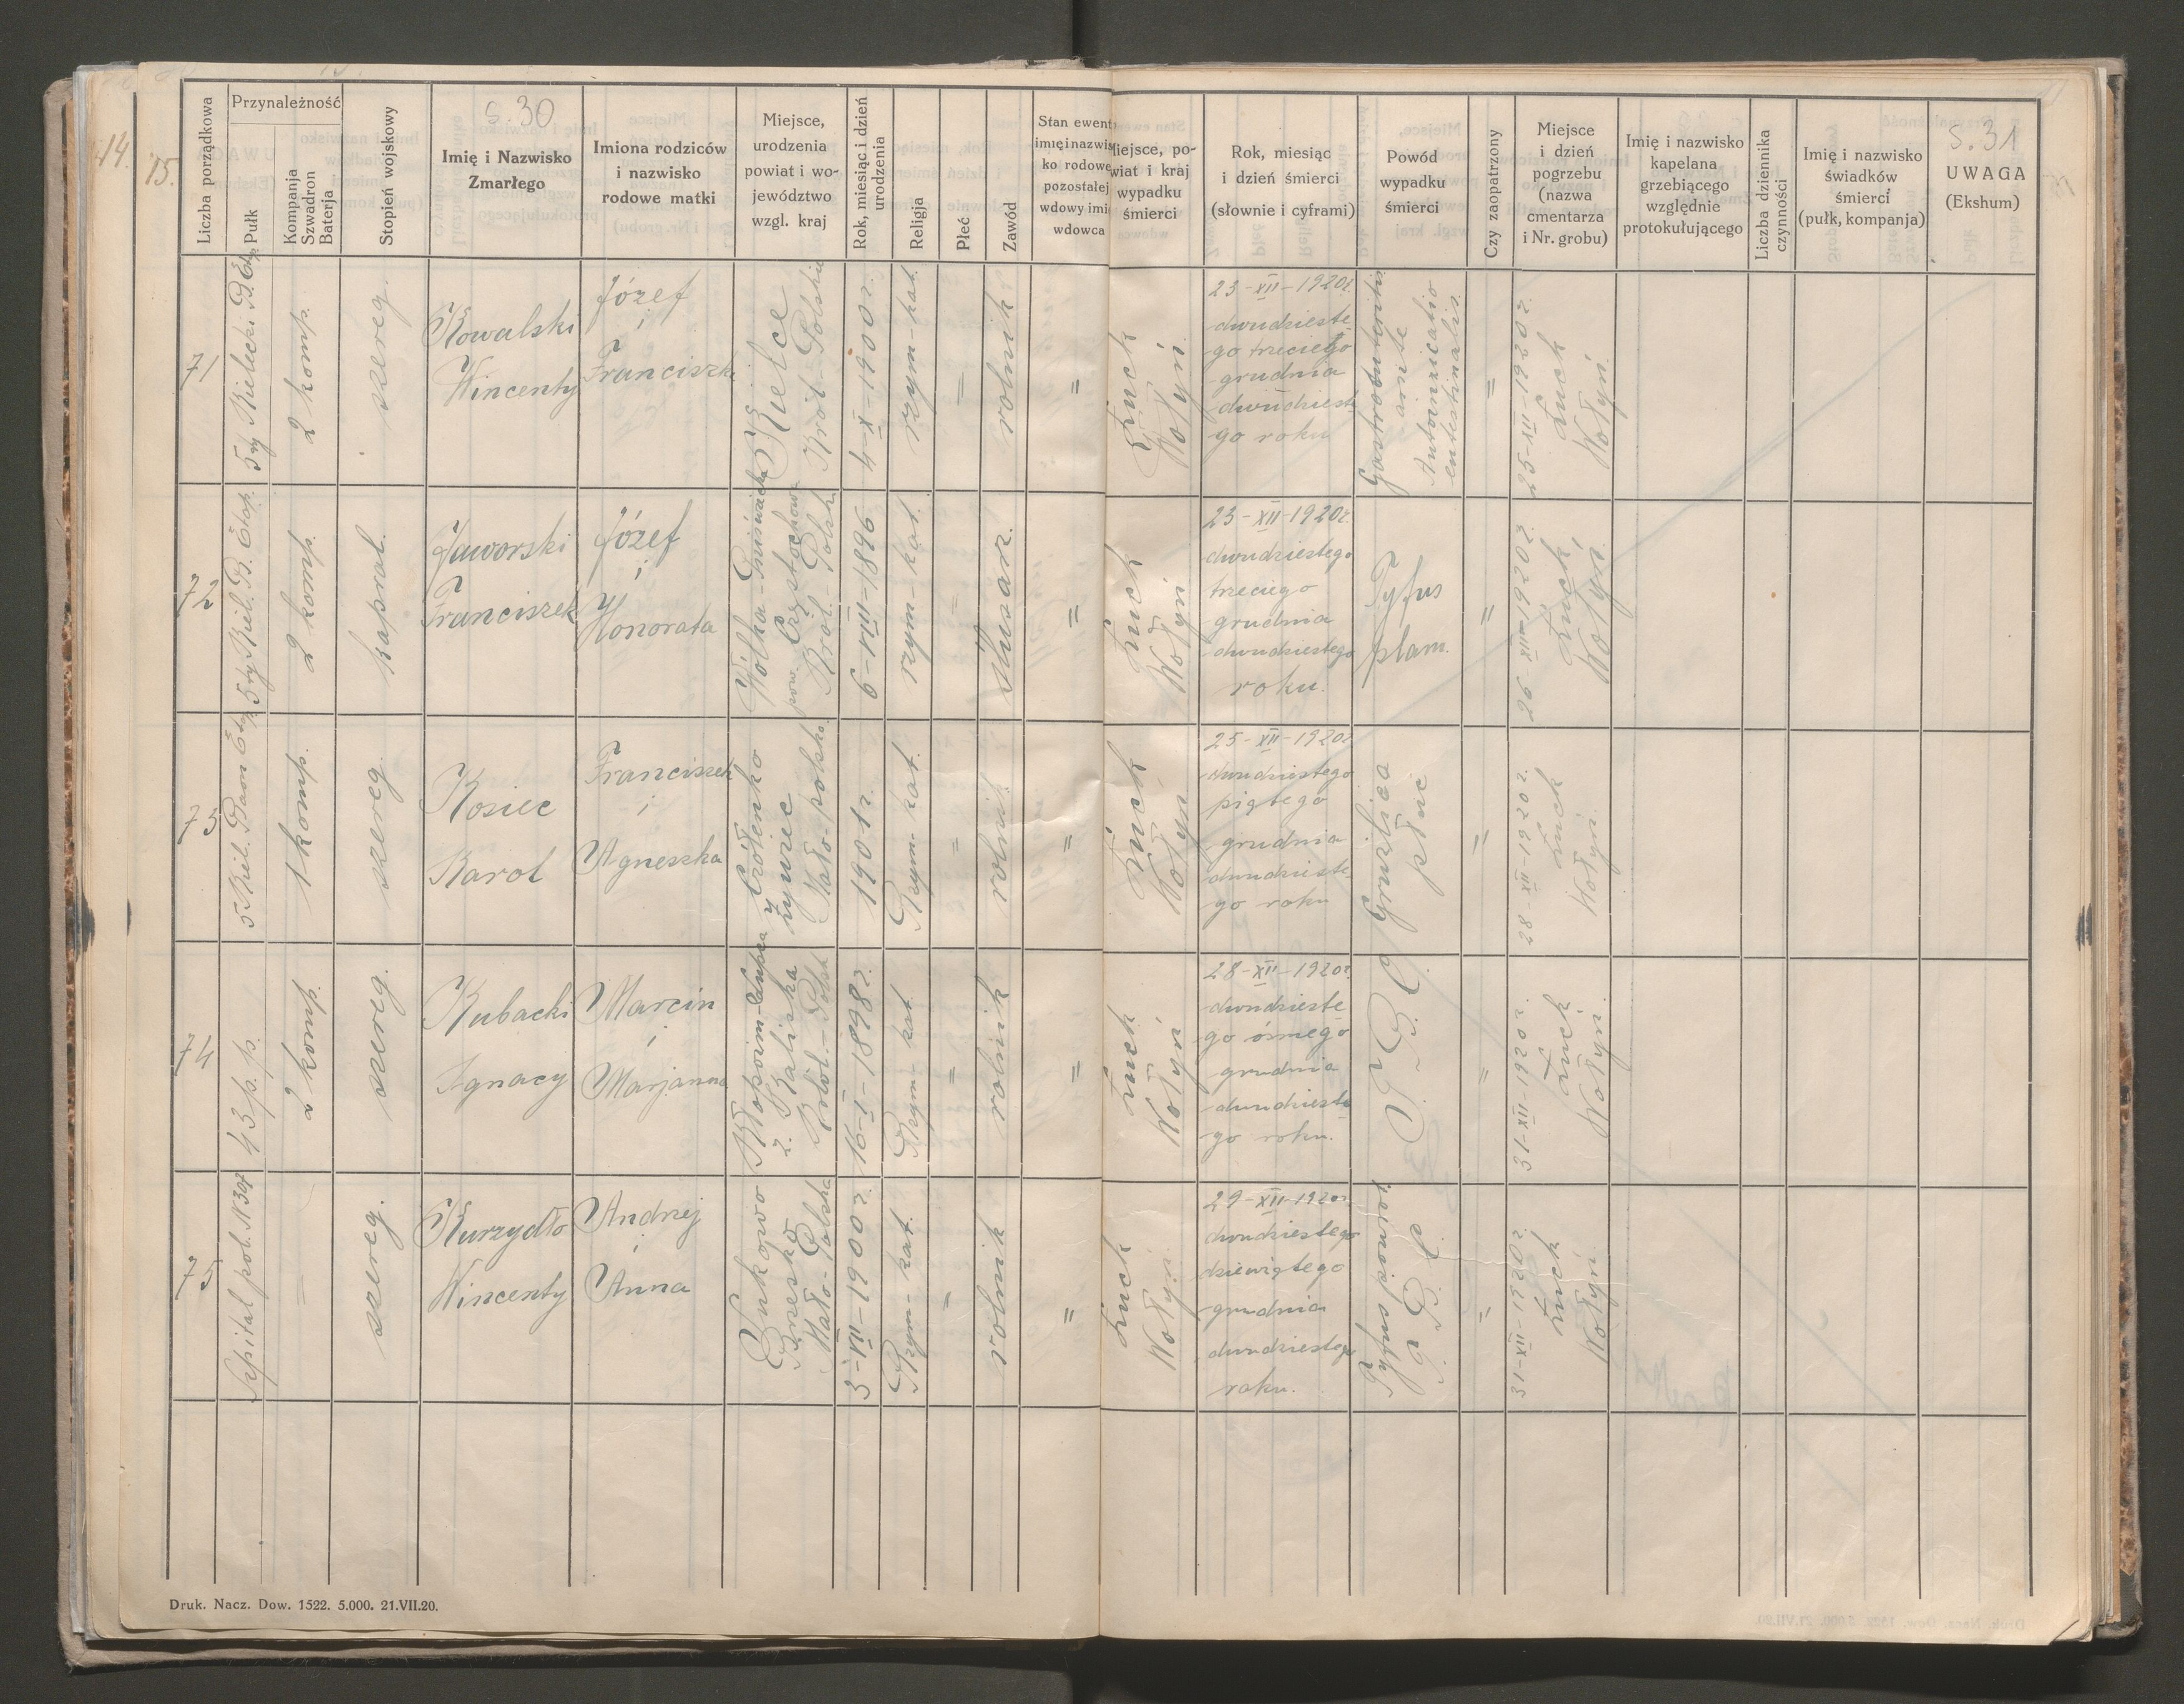 14.
15.
s. 30
s. 31
Liczba porządkowa
Przynależność
Pułk
Kompanja
Szwadron
Baterja
Stopień wojskowy
Imię i Nazwisko
Zmarłego
Imiona rodziców
i nazwisko
rodowe matki
Miejsce,
urodzenia
powiat i wo-
jewództwo
wzgl. kraj
Rok, miesiąc i dzień
urodzenia
Religja
Płeć
Zawód
Stan ewent
imię i nazwis
ko rodowe
pozostałej
wdowy imię
wdowca
Miejsce, po-
wiat i kraj
wypadku
śmierci
Rok, miesiąc
i dzień śmierci
(słownie i cyframi)
Powód
wypadku
śmierci
Czy zaopatrzony
Miejsce
i dzień
pogrzebu
(nazwa
cmentarza
i Nr. grobu)
Imię i nazwisko
kapelana
grzebiącego
względnie
protokułującego
Liczba dziennika
czynności
Imię i nazwisko
świadków
śmierci
(pułk, kompanja)
UWAGA
(Ekshum)
71
5ty Kielecki B. Etap.
2 komp.
szereg.
Kowalski
Wincenty
Józef
i
Franciszka
Kielce
Król-Polskie
4-X-1900 r.
rzym-kat.
=
rolnik
=
Łuck
Wołyń
23-XII-1920r.
dwudzieste-
go trzeciego
grudnia
dwudzieste-
go roku
Gastroenteritis
Autointoxicatio
intestinalis.
=
25-XII-1920 r.
Łuck
Wołyń.
72
5ty Kiel. B. Etap.
2 komp.
kapral.
Jaworski
Franciszek
Józef
i
Honorata
pow. Częstochowa
Król.-Polskie
6-VIII-1896
rzym-kat.
=
ślusarz.
=
Łuck
Wołyń
23-XII-1920r.
dwudziestego
trzeciego
grudnia
dwudziestego
roku.
Tyfus
plam.
=
26-XII-1920r.
Łuck
Wołyń.
73
5 Kiel. Baon Etap
1 komp.
szereg.
Kosiec
Karol
Franciszek
i
Agneszka
Mało-polska
1901 r.
Rzym-kat.
=
rolnik
=
Łuck
Wołyń
25-XII-1920r
dwudziestego
piątego
grudnia
dwudzieste-
go roku
Gruźlica
płuc
=
28-XII-1920 r.
Łuck
Wołyń.
74
43 p.p.
2 komp.
szereg.
Kubacki
Ignacy
Marcin
i
Marjanna
z. Kaliska
Król.-Polsk
16-I-1898 r.
Rzym-kat
=
rolnik
=
Łuck
Wołyń
28-XII-1920r.
dwudzieste-
go ósmego
grudnia
dwudzieste-
go roku.
=
31-XII-1920 r.
Łuck
Wołyń.
75
Szpital pol. N 307
=
szereg.
Kurzydło
Wincenty
Andrzej
i
Anna
Brzesko
Mało-Polska
3-VII-1900 r.
Rzym-kat.
=
rolnik
=
Łuck
Wołyń.
29-XII-1920r.
dwudziestego
dziewiątego
grudnia
dwudziestego
roku.
Tyfus
=
31-XII-1920r
Łuck
Wołyń.
Druk. Nacz. Dow. 1522. 5.000. 21.VII.20.